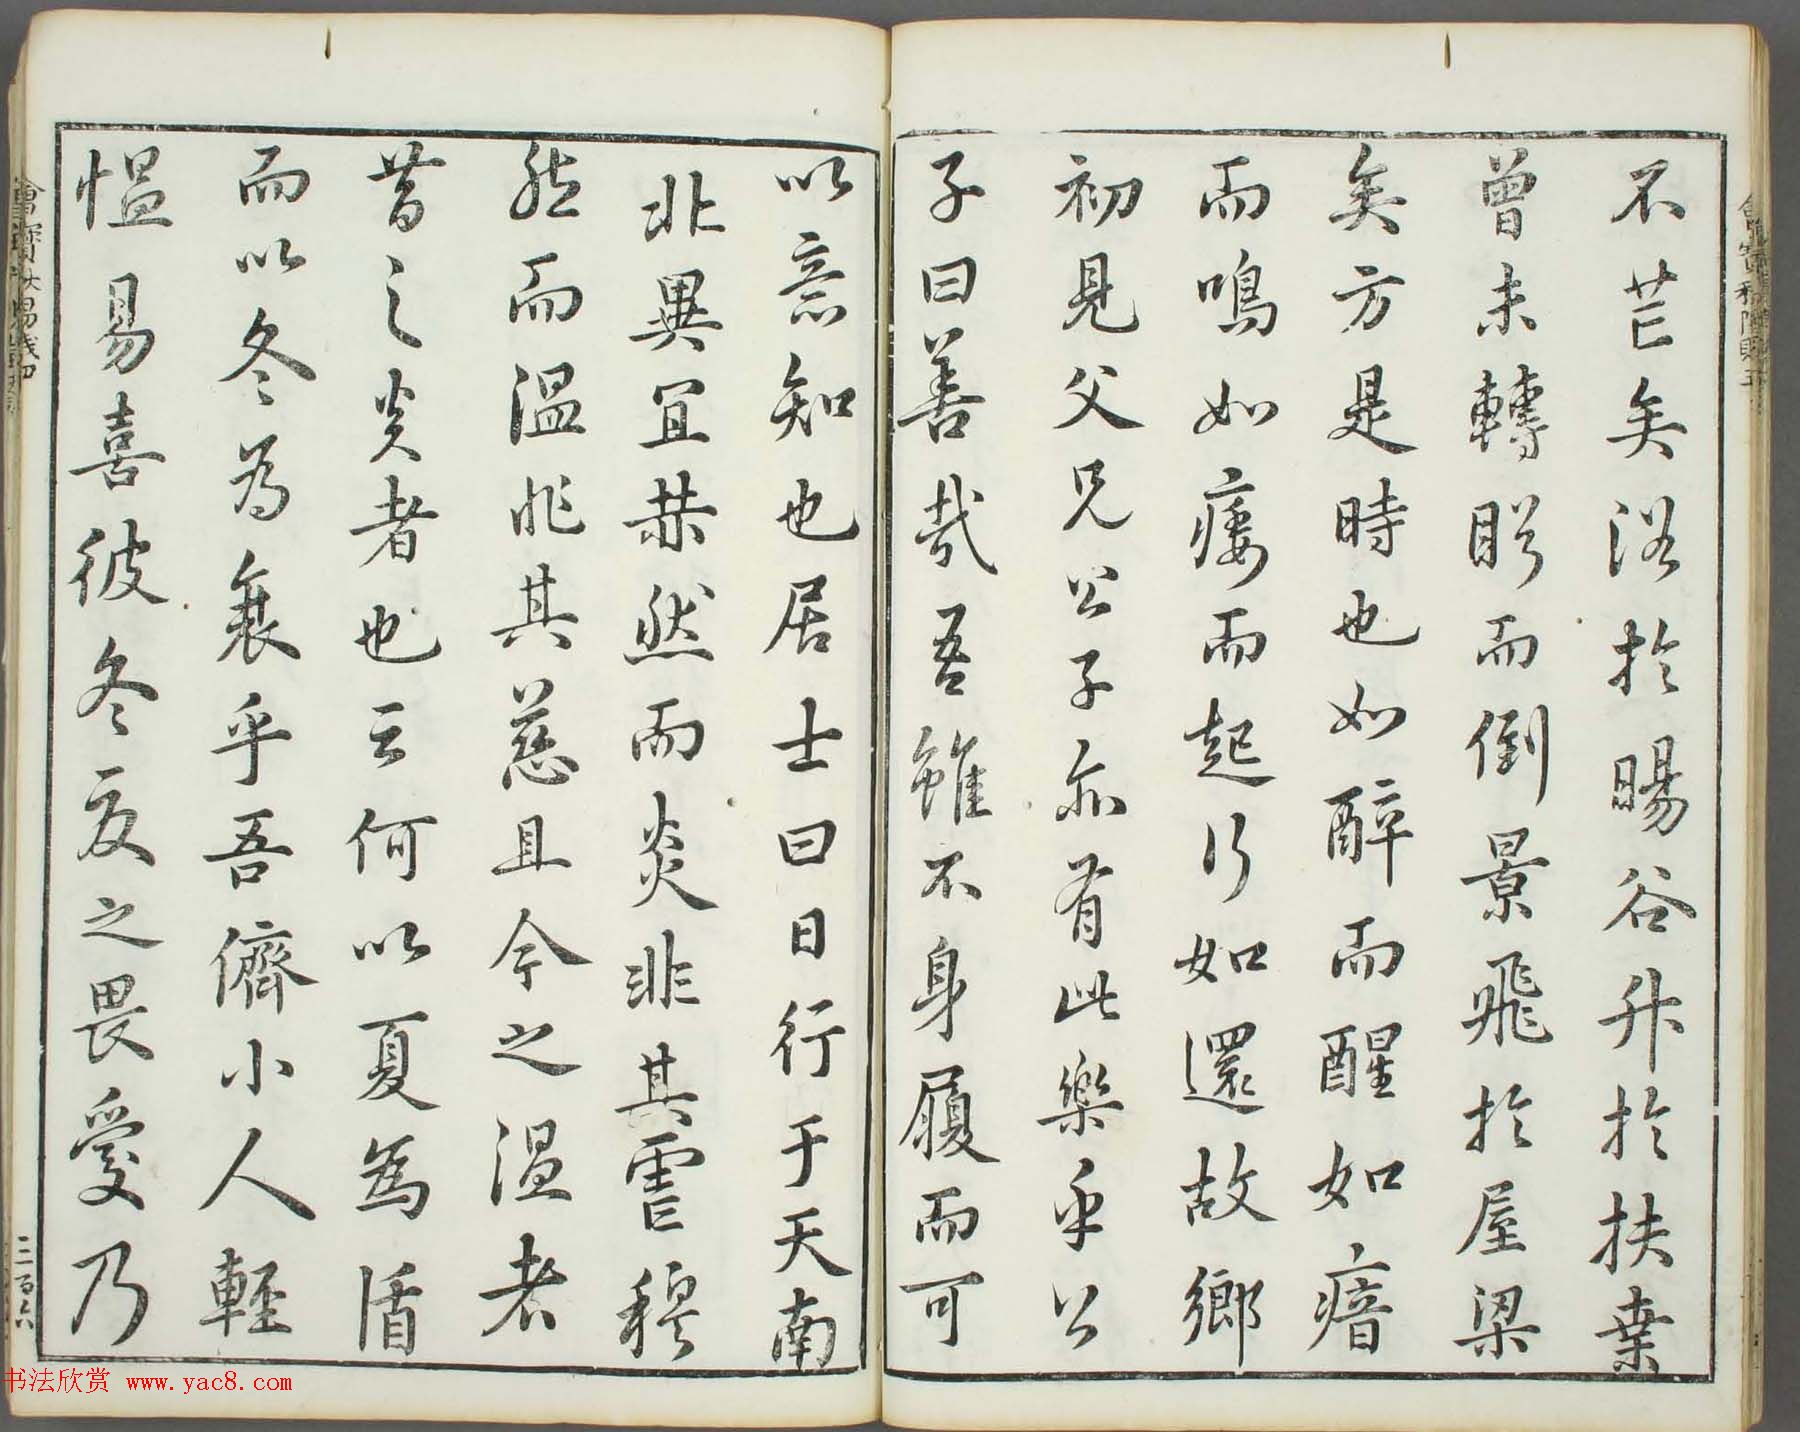 不芒矣浴於暘谷升於扶桒
曾未轉盻而倒景飛於屋梁
矣方是時也如醉而醒如瘖
而鳴如痿而起行如還故鄉
初見父兄公子亦有此樂乎公
子曰善哉吾雖不身履而可
以意知也居士曰日行于天南
北異宜赫然而炎非其虐穆
然而温非其慈且今之温者
昔之炎者也云何以夏為盾
而以冬為衰乎吾儕小人輕
愠易喜彼冬夏之畏愛乃
三百六
书法欣赏 www.yac8.com